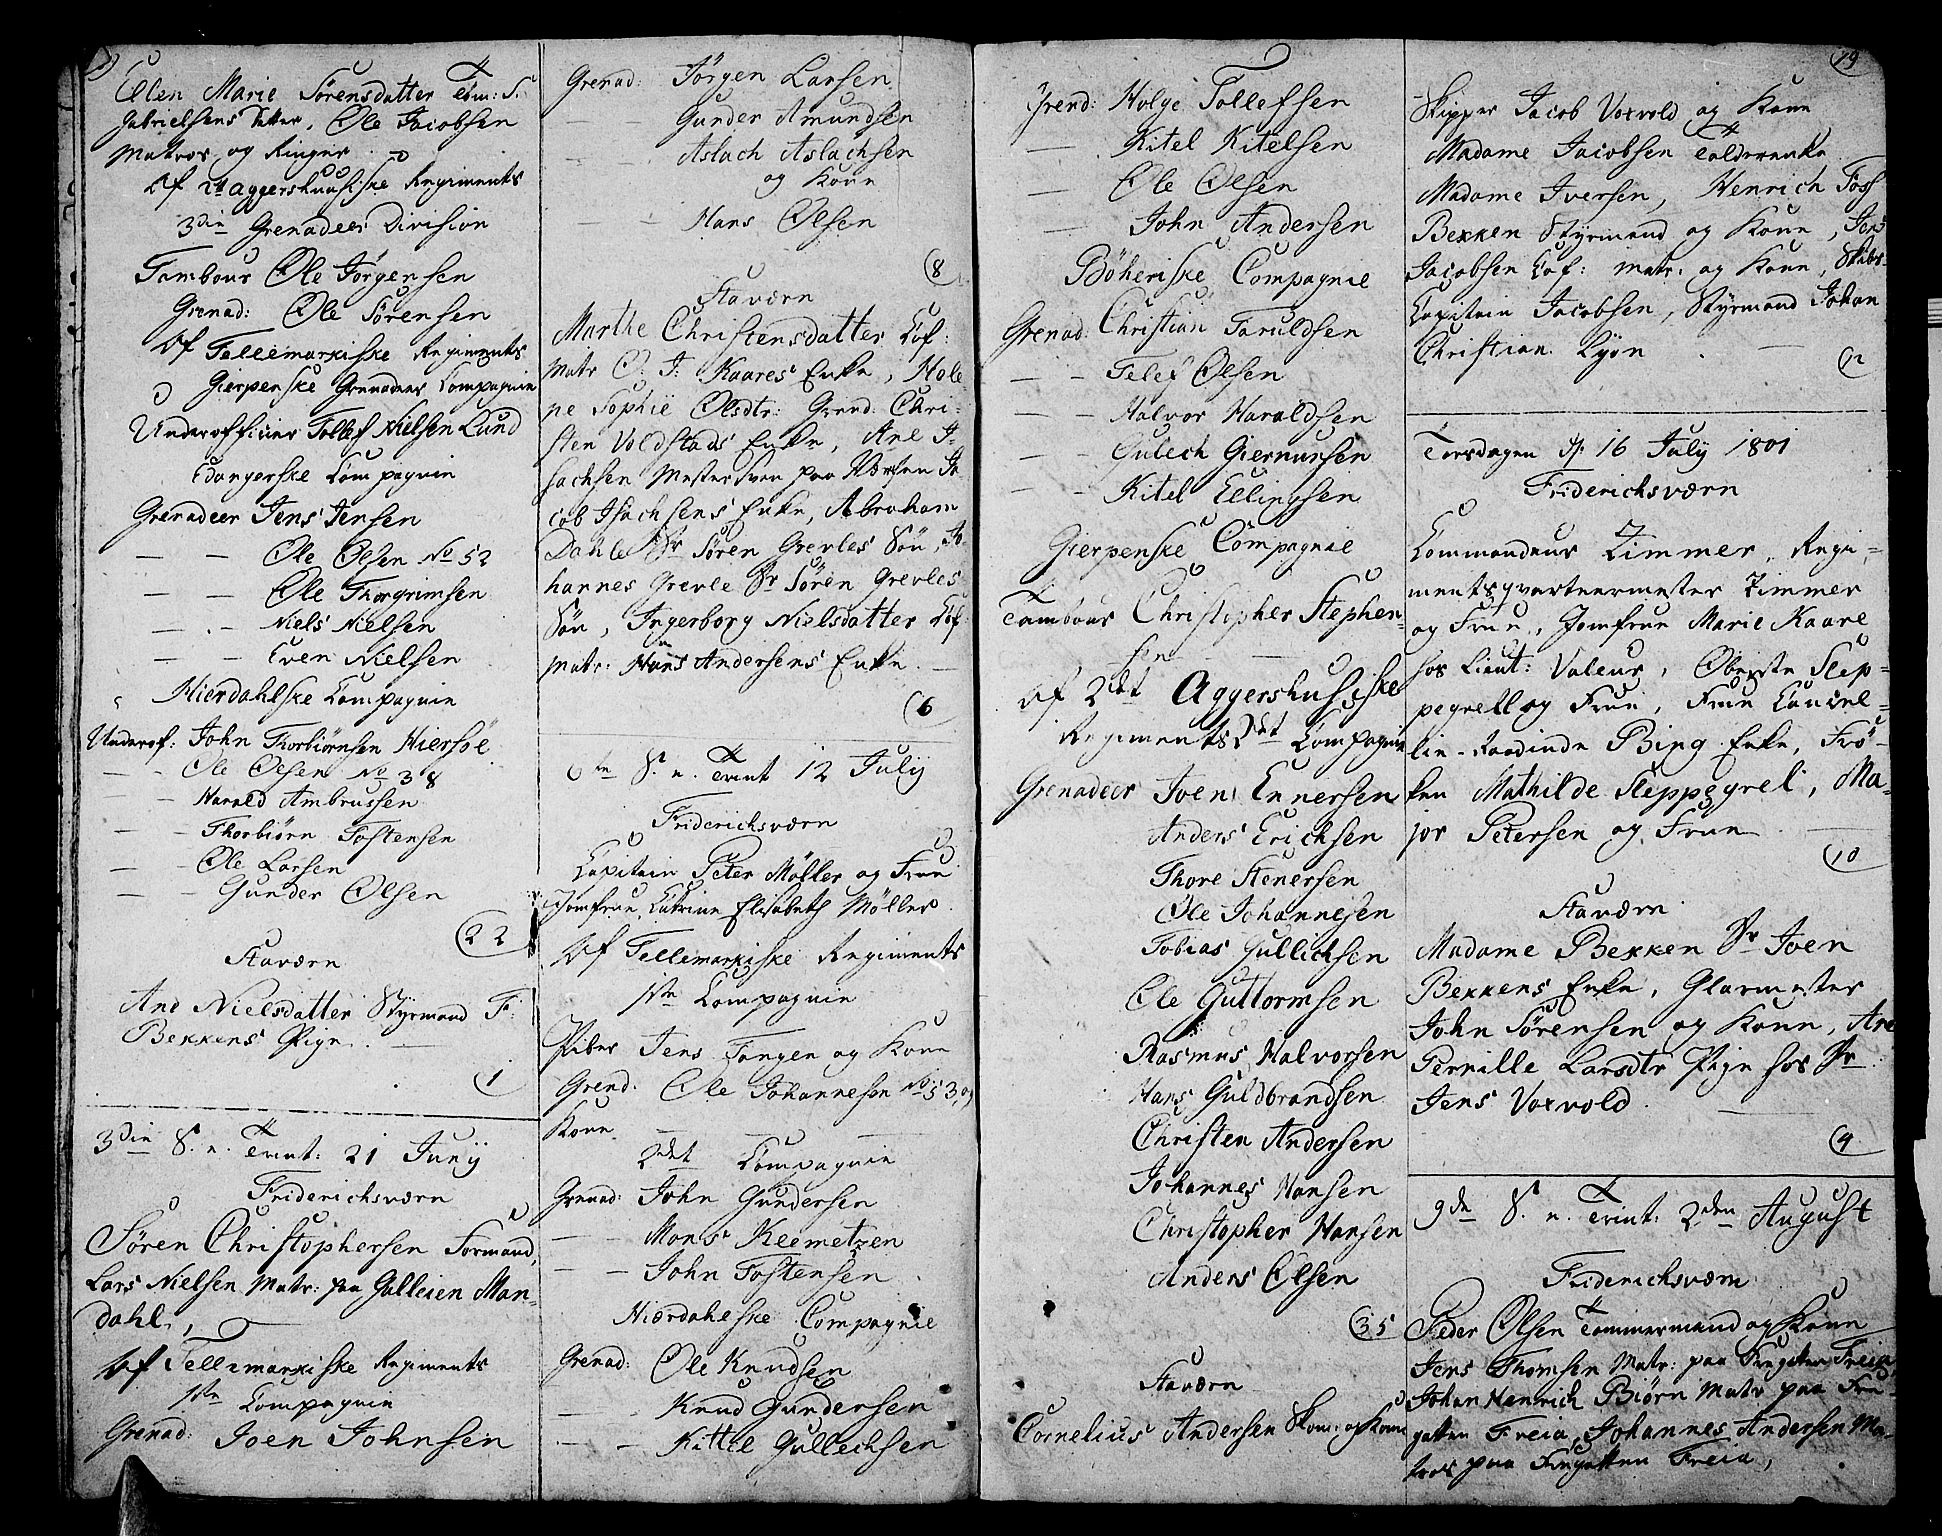 Ellen Marie Sörensdatter Töm: S.
Gabrielsens Datter, Ole Jacobsen
Matros og Ringer
Af 2t Aggershuusiske Regiments
3die Grenadeer Division
Tambour Ole Jörgensen
Grenad: Ole Sörensen
Af Tellemarkiske Regiments
Gierpenske Grenadeer Compagnie
Underofficeer Tollef Nielsen Lund
Edangerske Compagnie
Grenadeer Jens Jensen
— — Ole Olsen No 52
— — Ole Thorgrimsen
— — Niels Nielsen
— — Even Nielsen
Hierdahlske Compagnie
Underof: John Thorbiörnsen Hiersöe
— — Ole Olsen No 38
— — Harald Ambrussen
— — Thorbiörn Tostensen
— — Ole Larsen
— — Gunder Olsen
22
Staværn
Ane Nielsdatter Styrmand F:
Bekkens Pige
1
3die S. e. Trint: 21 Junij
Friderichsværn
Sören Christophersen Formand,
Lars Nielsen Matr: paa Galleien Man-
dahl,
Af Tellemarkiske Regiments
1ste Compagnie
Grenad: Joen Johnsen
Grenad: Jörgen Larsen
— — Gunder Amundsen
— — Aslach Aslachsen
og Kone
— — Hans Olsen
8
Staværn
Marthe Christensdatter Cof:
Matr C. J: Kaares Enke, Hele-
ne Sophie Olsdtr: Grend: Chri-
sten Voldstads Enke, Ane I-
sachsen Mestersven paa Værften Ja
cob Isachsens Enke, Abraham
Dahle Sr Sören Grevles Sön, Jo-
hannes Grevle Sr Sören Grevles
Sön, Ingerborg Nielsdatter Cof:
Matr: Hans Andersens Enke
6
6te S. e. Trint 12 Julij
Friderichsværn
Capitain Peter Möller og Frue
Jomfrue Catrine Elisabeth Möller
Af Tellemarkiske Regiments
1ste Compagnie
Piber Jens Tangen og Kone
Grend. Ole Johannesen No 53, og
Kone
2det Compagnie
Grenad: John Gundersen
— — Mons Keemetzen
— — John Tostensen
Hiærdahlske Compagnie
Grenad: Ole Knudsen
— — Knud Gundersen
— — Kittel Gullechsen
Grend: Holge Tollefsen
— Kitel Kitelsen
— Ole Olsen
— John Andersen
Böheriske Compagnie
Grenad: Christian Taruldsen
— — Telef Olsen
— — Halvor Haraldsen
— — Gulech Giernursen
— — Kitel Ellingsen
Gierpenske Compagnie
Tambour Christopher Stephen-
sen
Af 2det Aggershusiske
Regiments 2det Compagnie
Grenadeer Joen Ennersen
Anders Erichsen
Thore Stenersen
Ole Johannesen
Tobias Gullichsen
Ole Guttormsen
Rasmus Halvorsen
Hans Guldbrandsen
Christen Andersen
Johannes Hansen
Christopher Hansen
Anders Olsen
35
Staværn
Cornelius Andersen Skom: og Kone
19
Skipper Jacob Voxvold og Kone
Madame Jacobsen Tolderenke
Madame Iversen, Henrich Foss
Bekken Styrmand og Kone, Jens
Jacobsen Cof: Matr: og Kone, Skibs-
Capitain Jacobsen, Styrmand Johan
Christian Lyon
12
Torsdagen d. 16 July 1801
Friderichsværn
Commandeur Zimmer, Regi-
mentsqvarteermester Zimmer
og Frue, Jomfrue Marie Kaare
hos Lieut: Valeur, Oberste Slep-
pegrell og Frue, Frue Cancel-
lie-Raadinde Bing Enke, Frö-
ken Mathilde Sleppegrel, Ma-
jor Petersen og Frue
10
Staværn
Madame Bekken Sr Joen
Bekkens Enke, Glarmester
John Sörensen og Kone, Are
Pernille Larsdtr Pige hos Sr
Jens Voxvold
4
9de S. e. Trint: 2den August
Friderichsværn
Peder Olsen Tömmermand og Kone
Jens Thomsen Matr: paa Fregatten Freia
Johan Henrich Biörn Matr paa Fre-
gatten Freia, Johannes Andersen Ma-
tros paa Fregatten Freia,